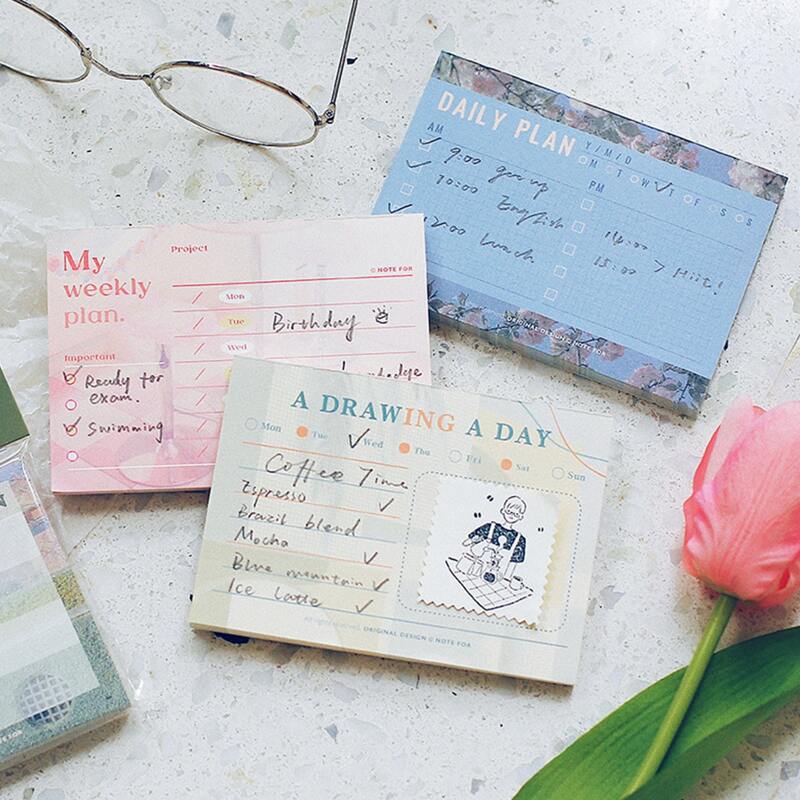 DAILY PLAN
Y / M / D
M T W T F S S
AM
PM
9:00 get up
10:00 English
12:00 lunch
14:00
15:00 > Hiit!
ORIGINAL DESIGN © NOTE FOR
My
weekly
plan.
Project
© NOTE FOR
Mon
Tue Birthday
Wed
Important
Ready for
exam.
Swimming
A DRAWING A DAY
Mon Tue Wed Thu Fri Sat Sun
Coffee Time
Espresso
Brazil blend
Mocha
Blue mountain
Ice latte
All rights reserved. ORIGINAL DESIGN © NOTE FOR